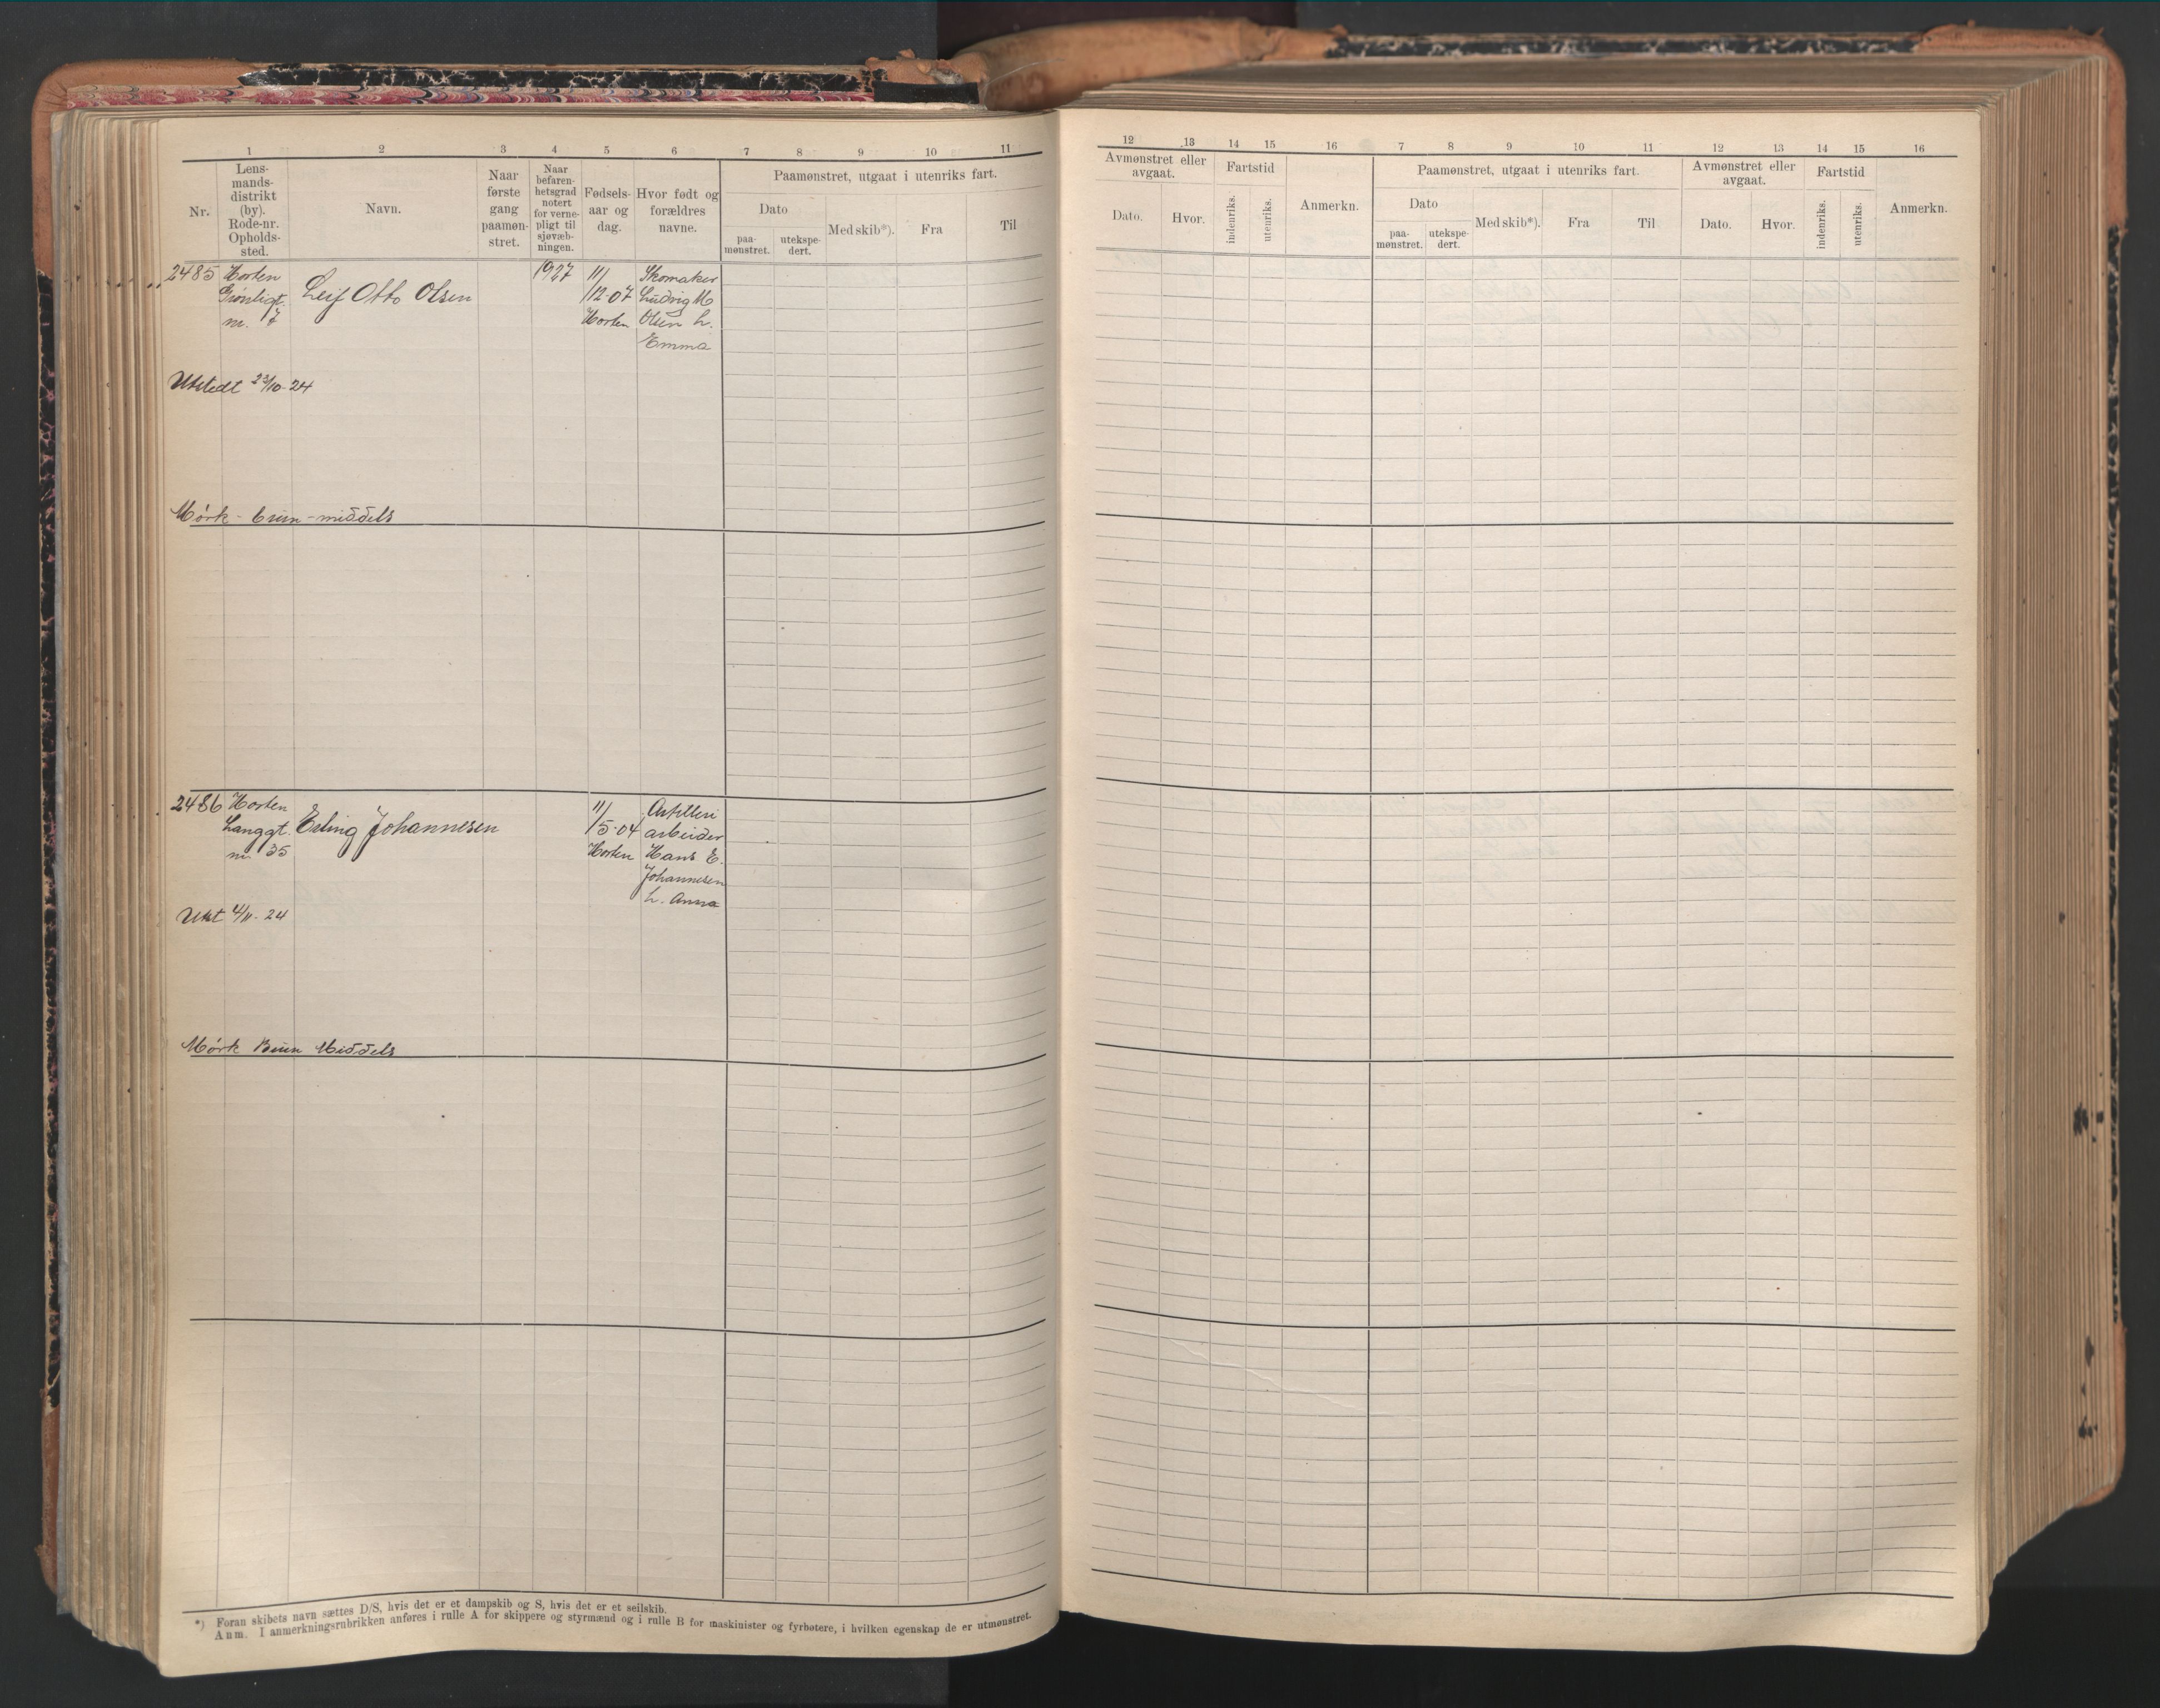 1 2 3 4 5 6 7 8 9 10 11
Nr.
Lens-
mands-
distrikt
(by).
Rode-nr.
Opholds-
sted.
Navn.
Naar
første
gang
paamøn-
stret.
Naar
befaren-
hetsgrad
notert
for verne-
pligt til
sjøvæb-
ningen.
Fødsels-
aar og
dag.
Hvor født og
forældres
navne.
Paamønstret, utgaat i utenriks fart.
Dato
paa-
mønstret.
utekspe-
dert.
Med skib*).
Fra
Til
2485 Horten
Grønligt.
nr. 7
Leif Otto Olsen
1927
11/
/12-07
Horten
Skomaker
Ludvig M
Olsen h.
Emma
Utstedt 23/10-24
Mörk - brun - middels
2486 Horten
Langgt.
nr. 35
Erling Johannesen
11/
/5-04
Horten
Artilleri
arbeider
Hans E.
Johannesen
h. Anna
Utst 4/11-24
Mörk Brun Middels
*) Foran skibets navn sættes D/S, hvis det er et dampskib og S, hvis det er et seilskib.
Anm. I anmerkningsrubrikken anføres i rulle A for skippere og styrmænd og i rulle B for maskinister og fyrbøtere, i hvilken egenskap de er utmønstret.
12 13 14 15 16 7 8 9 10 11 12 13 14 15 16
Avmønstret eller
avgaat.
Dato.
Hvor.
Fartstid
indenriks.
utenriks.
Anmerkn.
Paamønstret, utgaat i utenriks fart.
Dato
paa-
mønstret.
utekspe-
dert.
Med skib*).
Fra
Til
Avmønstret eller
avgaat.
Dato.
Hvor.
Fartstid
indenriks.
utenriks.
Anmerkn.